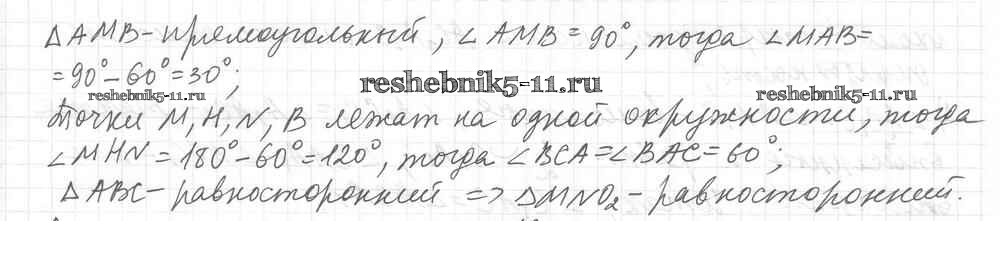 △AMB - прямоугольный, ∠AMB = 90°, тогда ∠MAB =
= 90° - 60° = 30°;
reshebnik5-11.ru
reshebnik5-11.ru
reshebnik5-11.ru
Точки M, H, N, B лежат на одной окружности, тогда
∠MHN = 180° - 60° = 120°, тогда ∠BCA = ∠BAC = 60°;
△ABC - равносторонний => △MNO₂ - равносторонний.